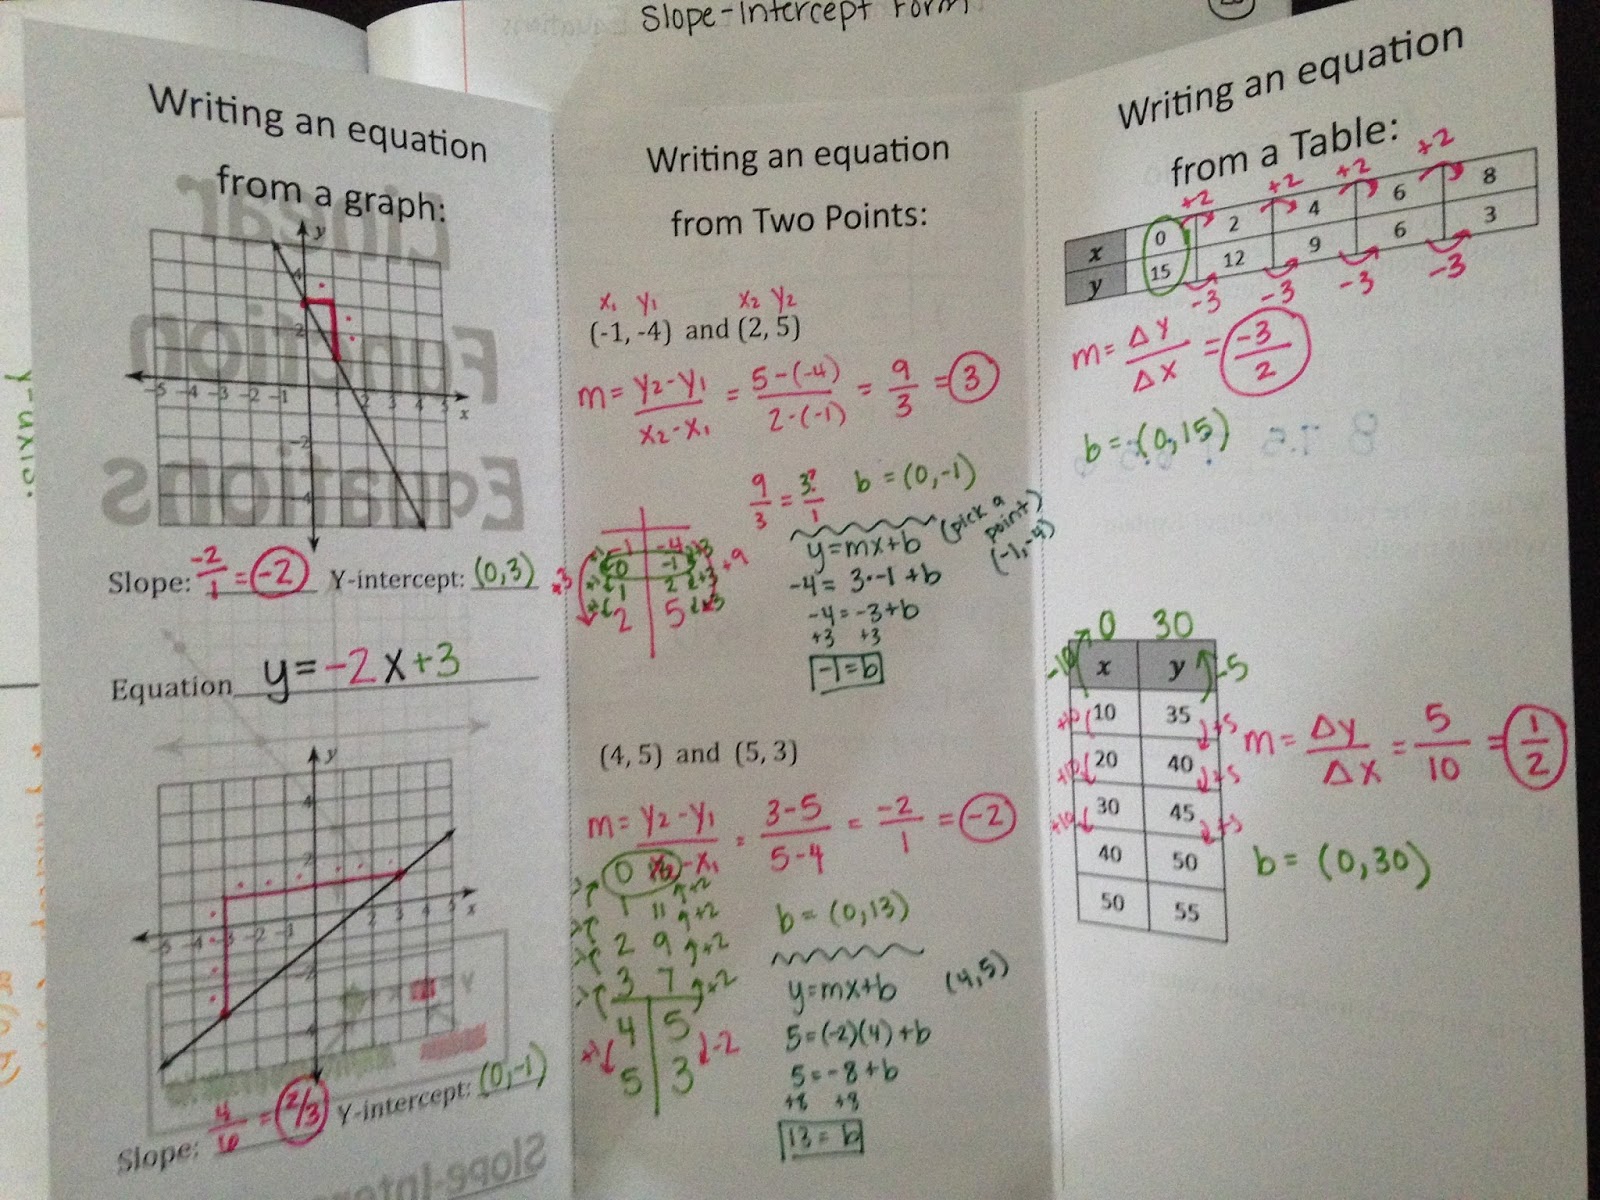 Slope-Intercept Form
Writing an equation
from a graph:
y
4
2
-5 -4 -3 -2 -1 1 2 3 4 5
x
-2
-4
Slope: -2/1 = -2 Y-intercept: (0,3)
Equation y = -2x+3
y
4
2
-5 -4 -3 -2 -1 2 3 4 5
x
-2
-4
Slope: 4/6 = 2/3 Y-intercept: (0,-1)
Writing an equation
from Two Points:
x₁ y₁ x₂ y₂
(-1, -4) and (2, 5)
m = y₂-y₁/x₂-x₁ = 5-(-4)/2-(-1) = 9/3 = 3
9/3 = 3/1 b = (0,-1)
-1 -4 +3
0 -1 +3
1 2 +3
2 5
+3 +9
y=mx+b (pick a point) (-1,-4)
-4 = 3·-1+b
-4 = -3+b
+3 +3
-1=b
(4, 5) and (5, 3)
m = y₂-y₁/x₂-x₁ = 3-5/5-4 = -2/1 = -2
0
1 11 +2
2 9 +2
3 7 +2
4 5
5 3 -2
b = (0,13)
y=mx+b (4,5)
5=(-2)(4)+b
5=-8+b
+8 +8
13 = b
Writing an equation
from a Table:
+2 +2 +2 +2
x 0 2 4 6 8
y 15 12 9 6 3
-3 -3 -3 -3
m = ΔY/ΔX = -3/2
b = (0,15)
0 30
-10 x y -5
+10 10 35 +5
+10 20 40 +5
+10 30 45 +5
40 50
50 55
m = Δy/Δx = 5/10 = 1/2
b = (0,30)
y-axis.